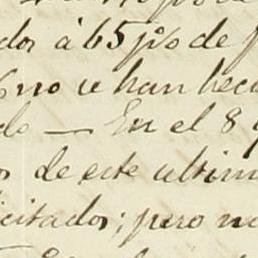 dos á 65 p% de
no se han hec
do — En el 8
de este ultim
icitados; pero no